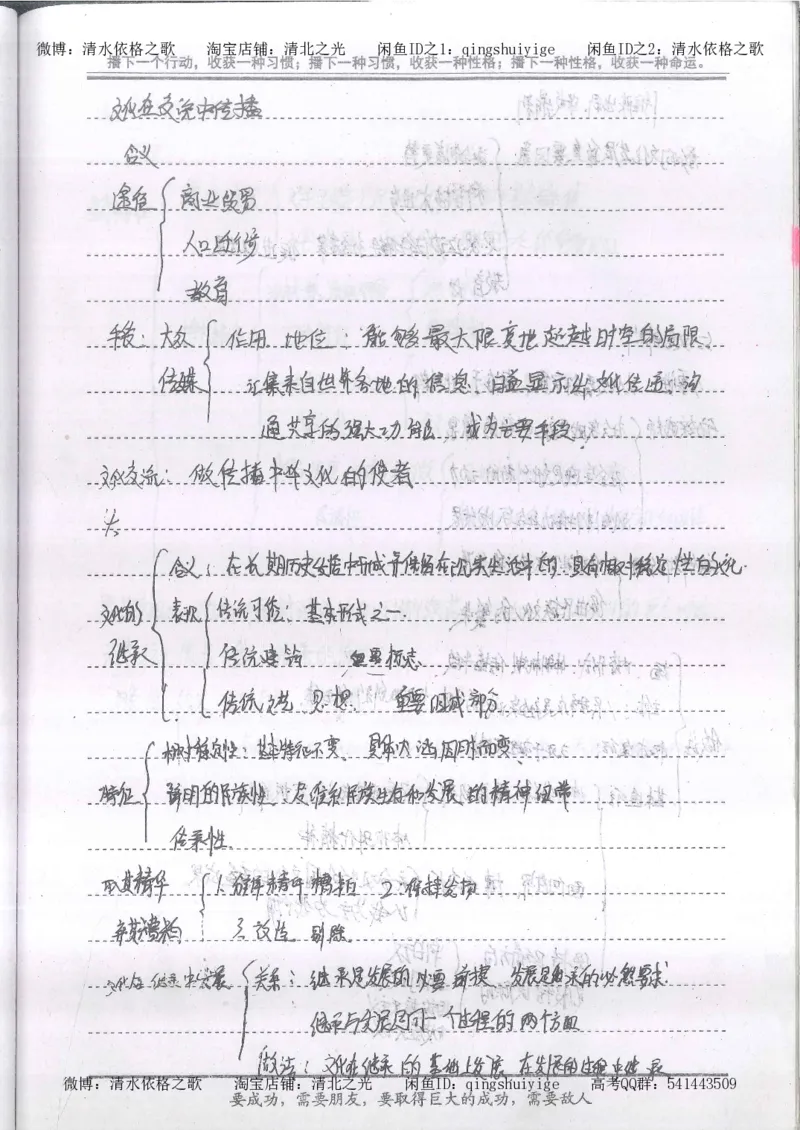 微博：清水依格之歌 淘宝店铺：清北之光 闲鱼ID之1：qingshuiyige 闲鱼ID之2：清水依格之歌
播下一个行动，收获一种习惯；播下一种习惯，收获一种性格；播下一种性格，收获一种命运。
文化在交流中传播
含义
途径 商业贸易
人口迁徙
教育
手段：大众 作用 地位：能够最大限度地超越时空的局限，
传媒 汇集来自世界各地的信息，日益显示出文化传递，沟
通共享的强大功能，成为主要手段
文化交流：做传播中华文化的使者
含义：在长期历史发展中形成并保留在现实生活中的，具有相对稳定性的文化
文化的 表现 传统习俗：基本形式之一
继承 传统建筑 标志
传统文艺 思想 重要组成部分
相对稳定性：基本特征不变，具体内涵因时而变
特征 鲜明的民族性：是维系民族生存和发展的精神纽带
传承性
取其精华 1. 2.保持发扬
弃其糟粕 3. 改造 剔除
文化在继承中发展 关系：继承是发展的必要前提 发展是继承的必然要求
继承与发展是同一个过程的两个方面
做法：文化在继承的基础上发展，在发展的过程中继承
微博：清水依格之歌 淘宝店铺：清北之光 闲鱼ID：qingshuiyige 高考QQ群：541443509
要成功，需要朋友，要取得巨大的成功，需要敌人